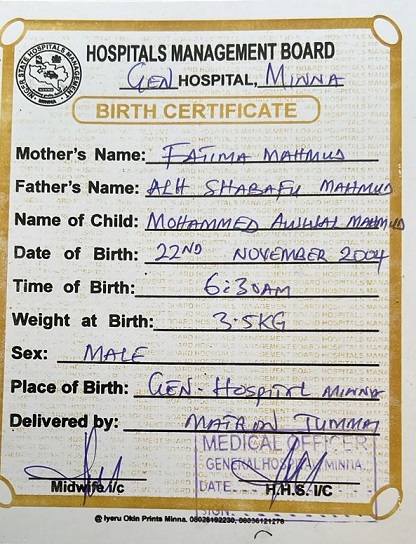 HOSPITALS MANAGEMENT BOARD
GEN HOSPITAL, MINNA
BIRTH CERTIFICATE
Mother's Name: FATIMA MAHMUD
Father's Name: ALH SHABAFU MAHMUD
Name of Child: MOHAMMED AUWAL MAHMUD
Date of Birth: 22ND NOVEMBER 2004
Time of Birth: 6:30AM
Weight at Birth: 3.5KG
Sex: MALE
Place of Birth: GEN-HOSPITAL MINNA
Delivered by: MATRON JUMMAI
MEDICAL OFFICER
GENERAL HOSPITAL, MINNA
DATE
Midwife i/c H.H.S. I/C
SIGN
@ Iyeru Okin Prints Minna.